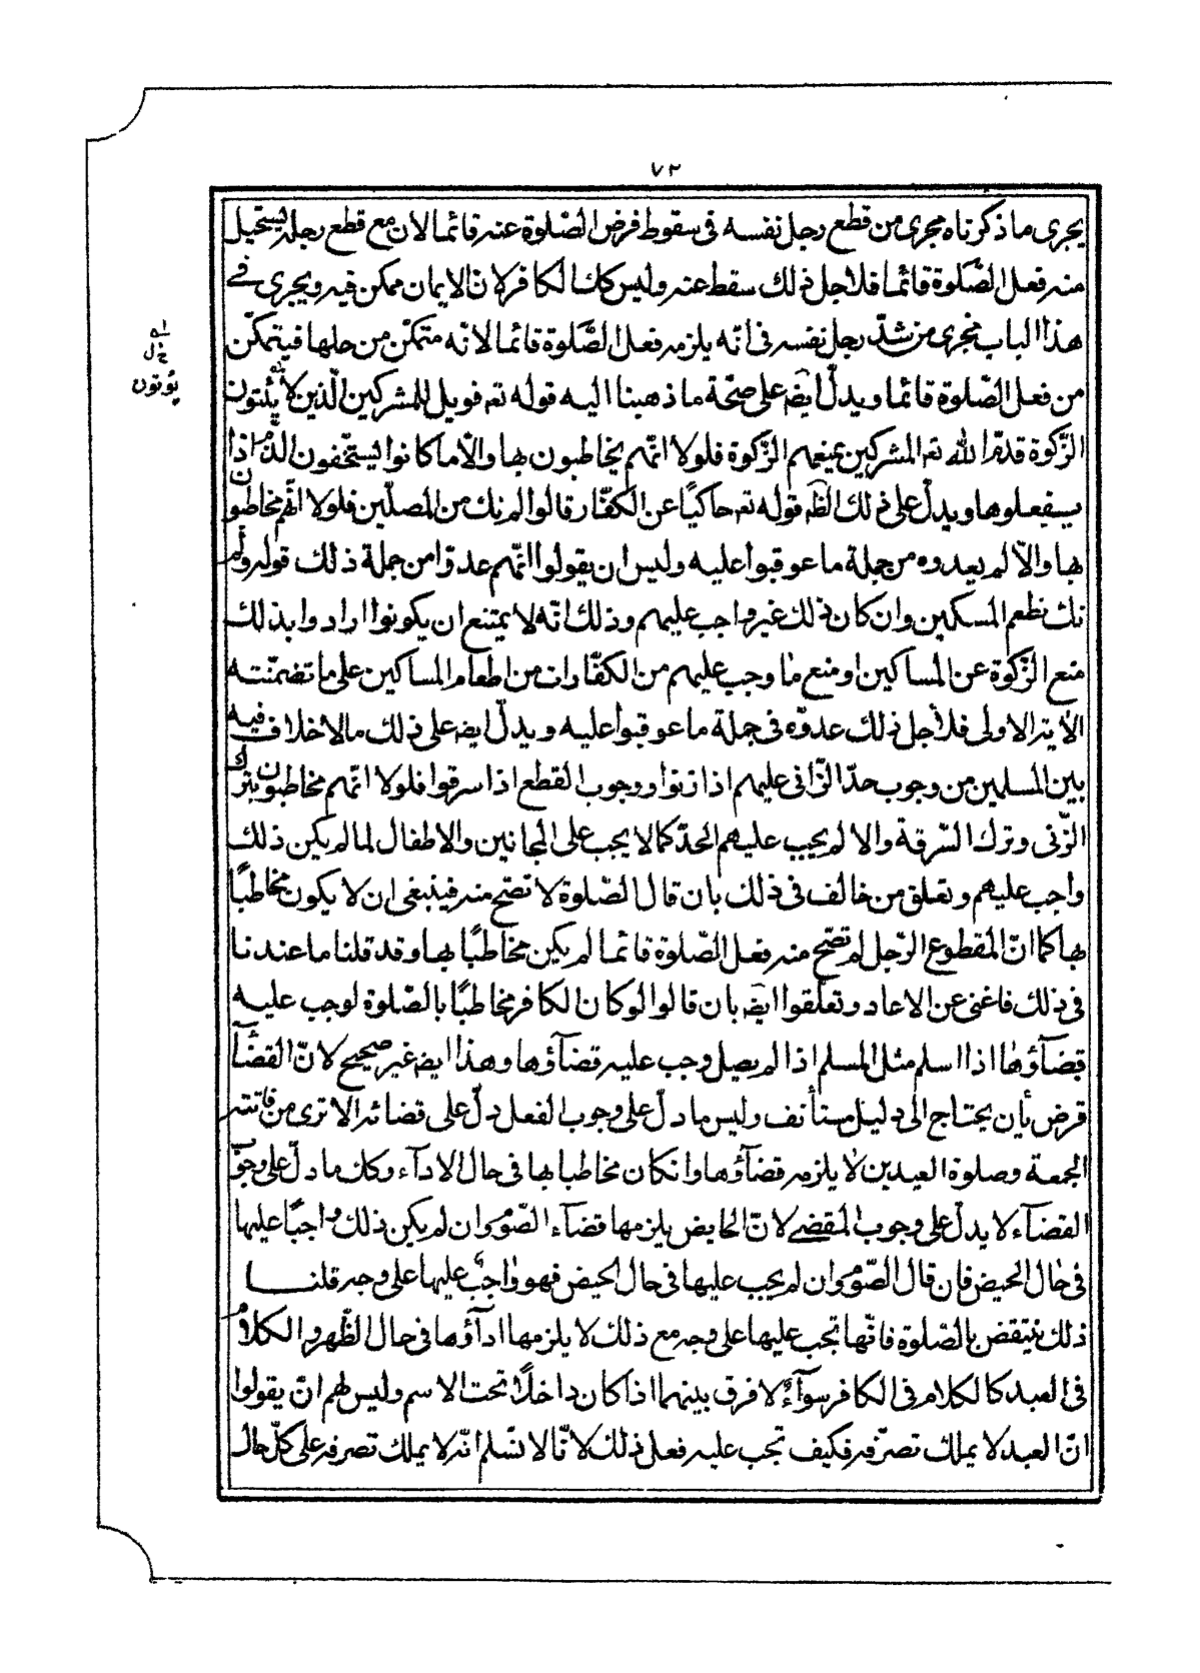 ٧٢
يجرى ما ذكرناه مجرى من قطع رجل نفسه فى سقوط فرض الصّلوة عنه قائما لان مع قطع رجله يستحيل
منه فعل الصّلوة قائما فلاجل ذلك سقط عنه وليس كك الكافر لانّ الايمان ممكن فيه ويجرى فى
هذا الباب مجرى من شدّ رجل نفسه فى انّه يلزمه فعل الصّلوة قائما لانّه متمكّن من حلها فيتمكّن
من فعل الصّلوة قائما ويدلّ ايضه على صحّة ما ذهبنا اليه قوله تعه فويل للمشركين الّذين لا
الزّكوة فذمّ الله تعه المشركين بمنعهم الزّكوة فلولا انّهم يخاطبون بها والّا ما كانوا ليستحّقون الذّم اذا
لم يفعلوها ويدلّ على ذلك ايضه قوله تعه حاكيًا عن الكفّار قالوا لم نك من المصلّين فلولا انّهم مخاطبون
بها والّا لم يعدوه من جملة ما عوقبوا عليه وليس ان يقولوا انّهم عدوّا من جملة ذلك قوله ولم
نك نطعم المسكين وان كان ذلك غير واجب عليهم وذلك انّه لا يمتنع ان يكونوا ارادوا بذلك
منع الزّكوة عن المساكين او منع ما وجب عليهم من الكفّارات من اطعام المساكين على ما تضمّنته
الاٰية الاولى فلاجل ذلك عدوّه فى جملة ما عوقبوا عليه ويدلّ ايضه على ذلك ما لا خلاف فيه
بين المسلمين من وجوب حدّ الزّانى عليهم اذا زنوا ووجوب القطع اذا سرقوا فلولا انّهم مخاطبون بترك
الزّنى وترك السّرقة والا لم يجب عليهم الحدّ كما لا يجب على المجانين والاطفال لما لم يكن ذلك
واجب عليهم وتعلق من خالف فى ذلك بان قال الصّلوة لا تصّح منه فينبغى ان لا يكون مخاطبًا
بها كما انّ المقطوع الرّجل لم تصّح منه فعل الصّلوة قائما لم يكن مخاطبًا بها وقد قلنا ما عندنا
فى ذلك فاغنى عن الاعاد وتعلّقوا ايضه بان قالوا لو كان الكافر مخاطبًا بالصّلوة لوجب عليه
قضآؤها اذا اسلم مثل المسلم اذا لم يصل وجب عليه قضآؤها وهذا ايضه غير صحيح لانّ القضآء
فرض ثان يحتاج الى دليل مستأنف وليس ما دلّ على وجوب الفعل دلّ على قضائه الا ترى من فاتته
الجمعة وصلوة العيدين لا يلزمه قضآؤها وان كان مخاطبا بها فى حال الادآء وكك ما دلّ على وجوب
القضآء لا يدلّ على وجوب المقضى لانّ الحايض يلزمها قضآء الصّوم وان لم يكن ذلك واجبًا عليها
فى حال الحيض فان قال الصّوم وان لم يجب عليها فى حال الحيض فهو واجب عليها على وجه قلنا
ذلك ينتقض بالصّلوة فانّها تجب عليها على وجه مع ذلك لا يلزمها ادآؤها فى حال الطّهر والكلام
فى العبد كالكلام فى الكافر سوآءً لا فرق بينهما اذا كان داخلًا تحت الاسم وليس لهم انّ يقولوا
انّ العبد لا يملك تصرّفه فكيف تجب عليه فعل ذلك لانّا لا نسّلم انّه لا يملك تصرفه على كلّ حال
يؤتون